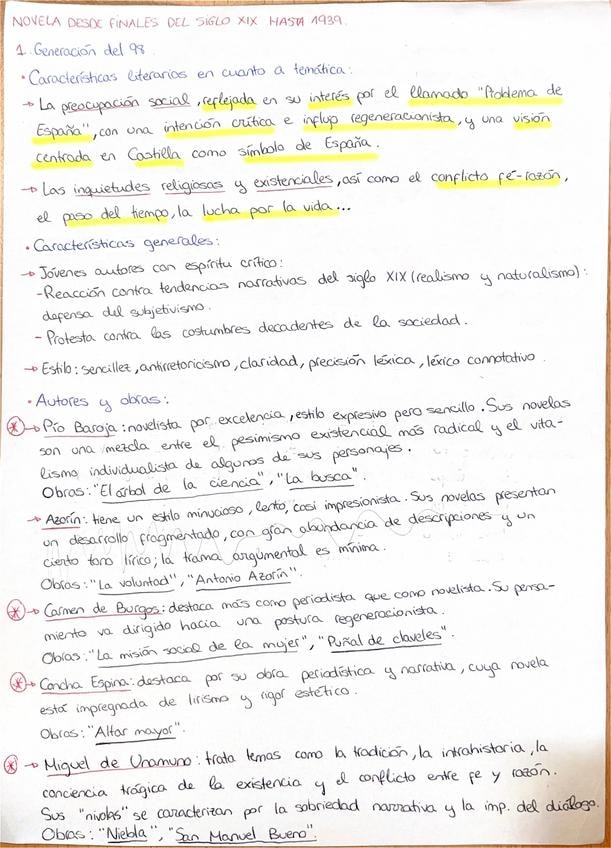 NOVELA DESDE FINALES DEL SIGLO XIX HASTA 1939.
1. Generación del 98.
· Características literarias en cuanto a temática:
→ La preocupación social, reflejada en su interés por el llamado "Problema de
España", con una intención crítica e influjo regeneracionista, y una visión
centrada en Castilla como símbolo de España.
→ Las inquietudes religiosas y existenciales, así como el conflicto fé-razón,
el paso del tiempo, la lucha por la vida...
· Características generales:
→ Jóvenes autores con espíritu crítico:
-Reacción contra tendencias narrativas del siglo XIX (realismo y naturalismo):
defensa del subjetivismo.
- Protesta contra las costumbres decadentes de la sociedad.
→ Estilo: sencillez, antirretoricismo, claridad, precisión léxica, léxico connotativo.
· Autores y obras:
* → Pío Baroja: novelista por excelencia, estilo expresivo pero sencillo. Sus novelas
son una mezcla entre el pesimismo existencial más radical y el vita-
lismo individualista de algunos de sus personajes.
Obras: "El árbol de la ciencia", "La busca".
→ Azorín: tiene un estilo minucioso, lento, casi impresionista. Sus novelas presentan
un desarrollo fragmentado, con gran abundancia de descripciones y un
cierto tono lírico; la trama argumental es mínima.
Obras: "La voluntad", "Antonio Azorín".
* → Carmen de Burgos: destaca más como periodista que como novelista. Su pensa-
miento va dirigido hacia una postura regeneracionista.
Obras: "La misión social de la mujer", "Puñal de claveles".
* → Concha Espina: destaca por su obra periodística y narrativa, cuya novela
está impregnada de lirismo y rigor estético.
Obras: "Altar mayor".
* → Miguel de Unamuno: trata temas como la tradición, la intrahistoria, la
conciencia trágica de la existencia y el conflicto entre fe y razón.
Sus "nivolas" se caracterizan por la sobriedad narrativa y la imp. del diálogo.
Obras: "Niebla", "San Manuel Bueno".